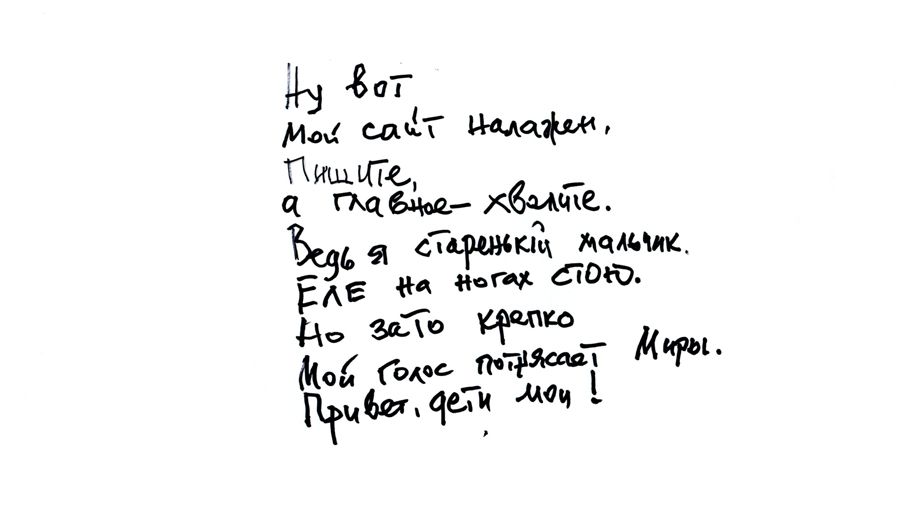 Ну вот
Мой сайт налажен.
Пишите,
а главное – хвалите.
Ведь я старенький мальчик.
ЕЛЕ на ногах стою.
Но зато крепко
Мой голос потрясает Миры.
Привет, дети мои!